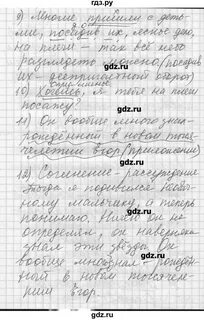 9) Многие пришли с деть-
ми, посадив их, ясное дело,
на плечи — так всё него
разглядеть можно (посадив
их — деепричастный оборот)
10) Хочешь, я тебя на плечи
посажу?
11) Он вообще много знал
рождённый в новом тыся-
челетии Егор. (приложение)
12) Сочинение-рассуждение
Тогда я подивился новому
мальчику, а теперь
понимаю. Ничем он не
определён, он наверняка
знал эти звёзды. Он
вообще много знал — рождён-
ный в новом тысяче-
летии Егор.